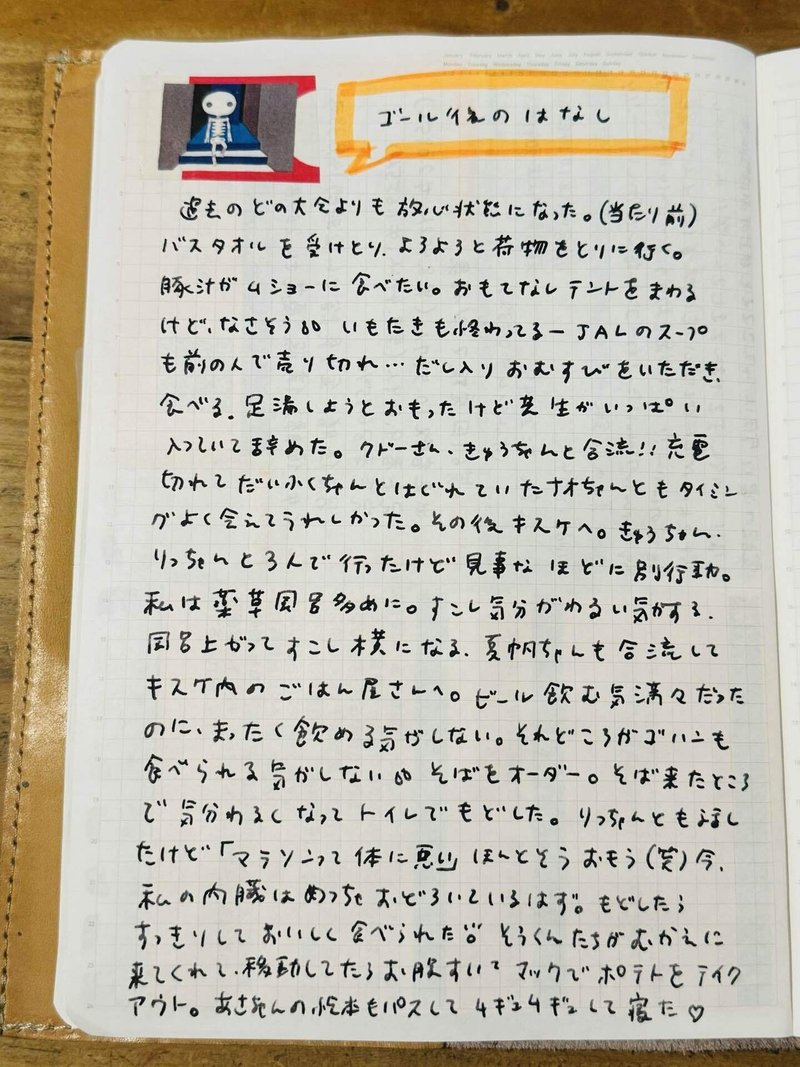 January February March April May June July August September October November December
Monday Tuesday Wednesday Thursday Friday Saturday Sunday
ゴール後のはなし
過去のどの大会よりも放心状態になった。(当たり前)
バスタオルを受けとり、よろよろと荷物をとりに行く。
豚汁がムショーに食べたい。おもてなしテントをまわる
けど、なさそう。。いもたきも終わってるーJALのスープ
も前の人で売り切れ…だし入りおむすびをいただき、
食べる。足湯しようとおもったけど先生がいっぱい
入っていて辞めた。クドーさん、きゅうちゃんと合流!!充電
切れてだいふくちゃんとはぐれていたナオちゃんともタイミン
グがよく会えてうれしかった。その後キスケへ。きゅうちゃん、
りっちゃんと3人で行ったけど見事なほどに別行動。
私は薬草風呂多めに。すこし気分がわるい気がする。
風呂上がってすこし横になる。夏帆ちゃんも合流して
キスケ内のごはん屋さんへ。ビール飲む気満々だった
のに、まったく飲める気がしない。それどころかゴハンも
食べられる気がしない。。そばをオーダー。そば来たところ
で気分わるくなってトイレでもどした。りっちゃんとも話し
たけど「マラソンって体に悪い」ほんとそうおもう(笑)今、
私の内臓はめっちゃおどろいているはず。もどしたら
すっきりしておいしく食べられた。そうくんたちがむかえに
来てくれて、移動してたらお腹すいてマックでポテトをテイク
アウト。の絵本もパスしてムギュムギュして寝た♡